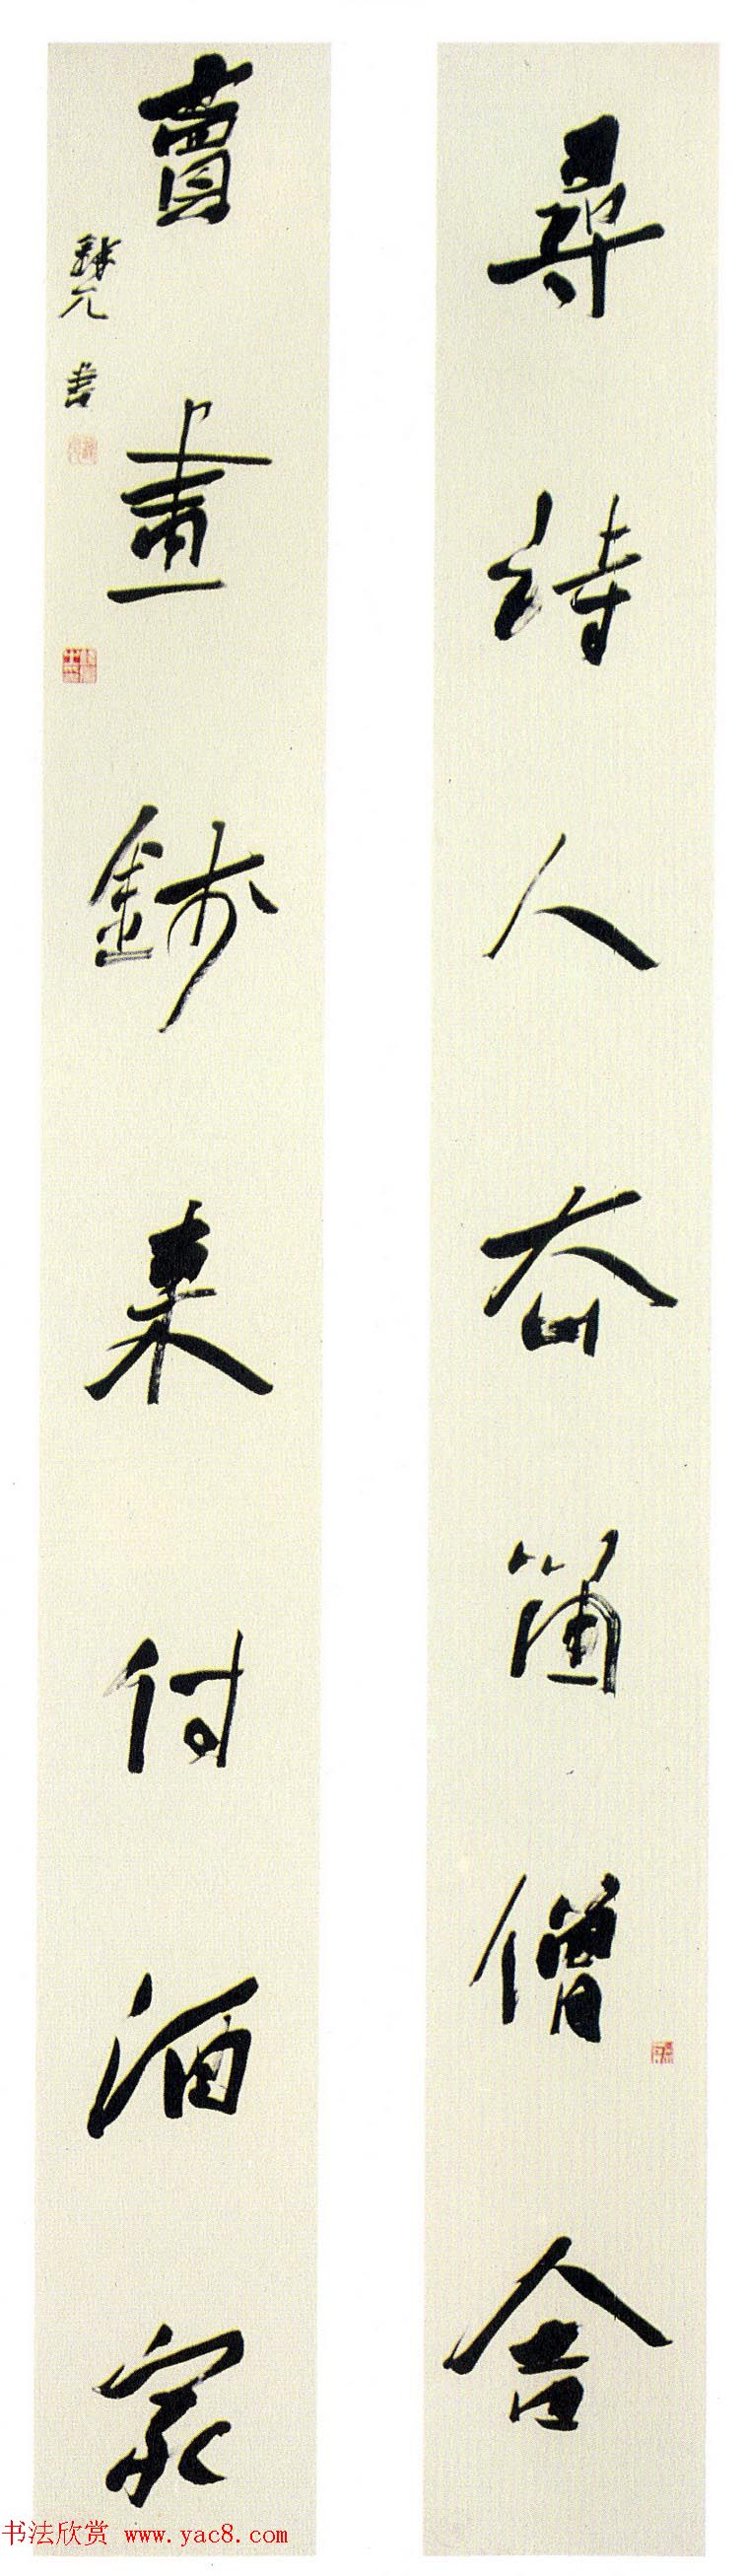 尋詩人去留僧舍
賣畫錢來付酒家
书法欣赏 www.yac8.com